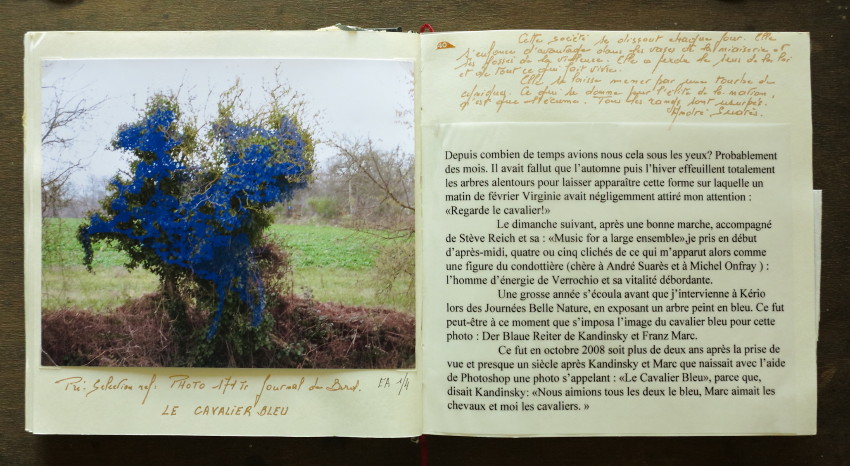 LE CAVALIER BLEU
60
Cette société se dissout chaque jour. Elle
s'enfonce d'avantage dans les vases de la
et de tout ce qui fait vivre.
Elle se laisse mener par une tourbe de
qui se donne pour l'élite de la nation,
n'est que l'écume. Tous les rangs sont usurpés.
André Suarès.
Depuis combien de temps avions nous cela sous les yeux? Probablement
des mois. Il avait fallut que l'automne puis l'hiver effeuillent totalement
les arbres alentours pour laisser apparaître cette forme sur laquelle un
matin de février Virginie avait négligemment attiré mon attention :
«Regarde le cavalier!»
Le dimanche suivant, après une bonne marche, accompagné
de Stève Reich et sa : «Music for a large ensemble»,je pris en début
d'après-midi, quatre ou cinq clichés de ce qui m'apparut alors comme
une figure du condottière (chère à André Suarès et à Michel Onfray ) :
l'homme d'énergie de Verrochio et sa vitalité débordante.
Une grosse année s'écoula avant que j'intervienne à Kério
lors des Journées Belle Nature, en exposant un arbre peint en bleu. Ce fut
peut-être à ce moment que s'imposa l'image du cavalier bleu pour cette
photo : Der Blaue Reiter de Kandinsky et Franz Marc.
Ce fut en octobre 2008 soit plus de deux ans après la prise de
vue et presque un siècle après Kandinsky et Marc que naissait avec l'aide
de Photoshop une photo s'appelant : «Le Cavalier Bleu», parce que,
disait Kandinsky: «Nous aimions tous les deux le bleu, Marc aimait les
chevaux et moi les cavaliers. »